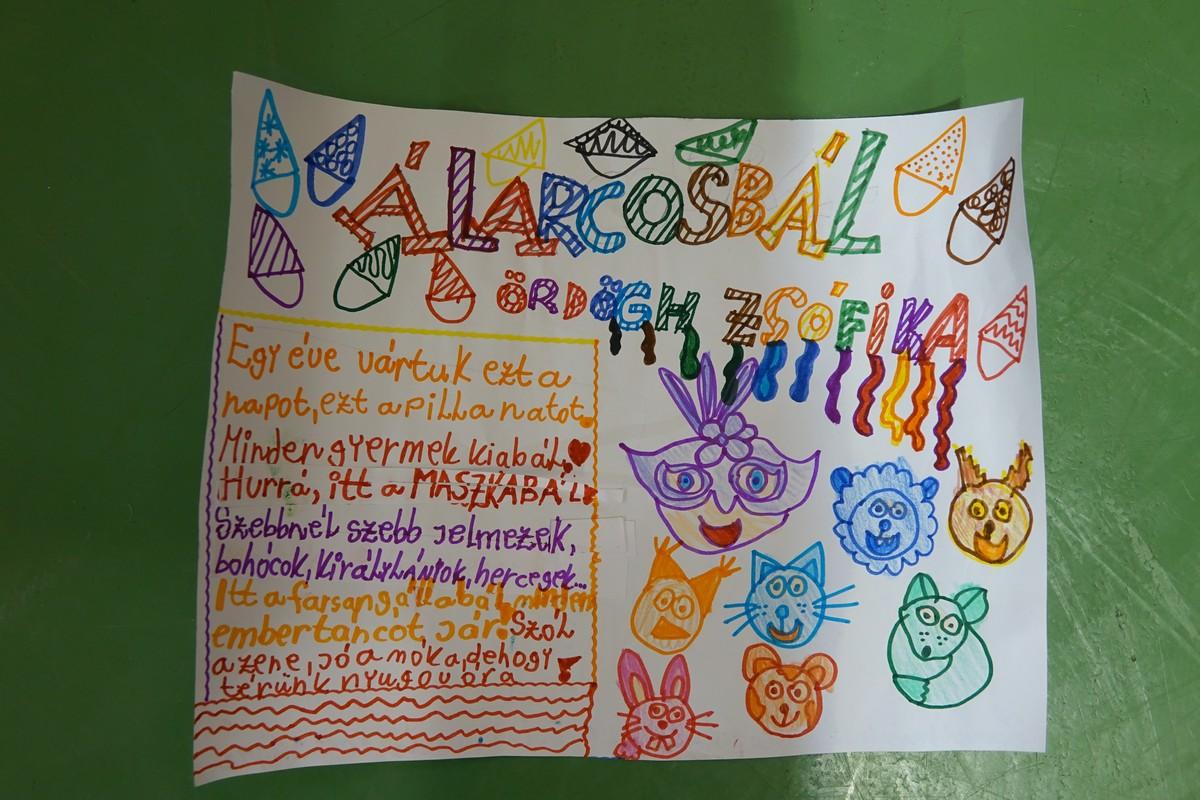 ÁLARCOSBÁL
ÖRDÖGH ZSÓFIKA
Egy éve vártuk ezt a
napot, ezt a pillanatot.
Minden gyermek kiabál!
Hurrá, itt a MASZKABÁL!
Szebbnél szebb jelmezek,
bohócok, királylányok, hercegek...
Itt a farsang, áll a bál, minden
ember táncot jár! Szól
a zene, jó a móka, dehogy
térünk nyugovóra!